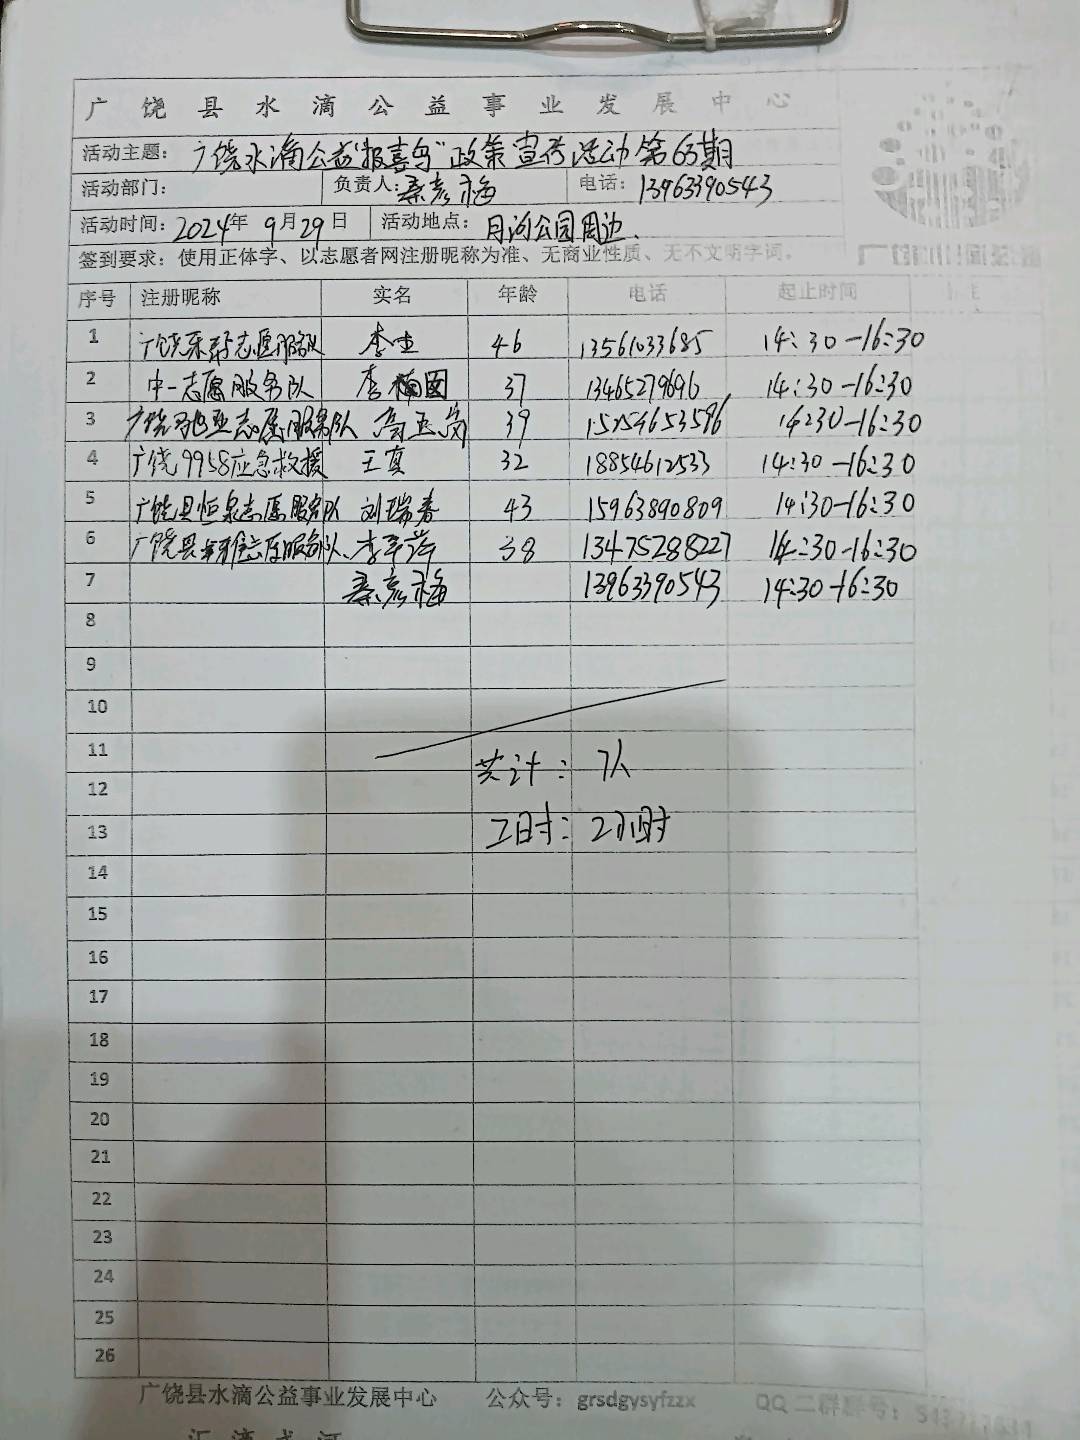 广饶县水滴公益事业发展中心
活动主题: 广饶水滴公益"报喜鸟"政策宣传活动第63期
活动部门: 负责人: 秦彦梅 电话: 13963390543
活动时间: 2024年 9月29日 活动地点: 月河公园周边.
签到要求: 使用正体字、以志愿者网注册昵称为准、无商业性质、无不文明字词。
序号 注册昵称 实名 年龄 电话 起止时间
1 广饶 志愿服务队 李 46 13561033685 14:30-16:30
2 中一志愿服务队 李楠 37 13465279696 14:30-16:30
3 广饶 志愿服务队 高 39 15754653596 14:30-16:30
4 广饶9958应急救援 王真 32 18854612533 14:30-16:30
5 广饶县恒泉志愿服务队 刘瑞春 43 15963890809 14:30-16:30
6 广饶县 志愿服务队 李 萍 38 13475288227 14:30-16:30
7 秦彦梅 13963390543 14:30-16:30
8
9
10
11
共计: 7人
12
13
工时: 2小时
14
15
16
17
18
19
20
21
22
23
24
25
26
广饶县水滴公益事业发展中心 公众号: grsdgysyfzzx QQ二群群号: